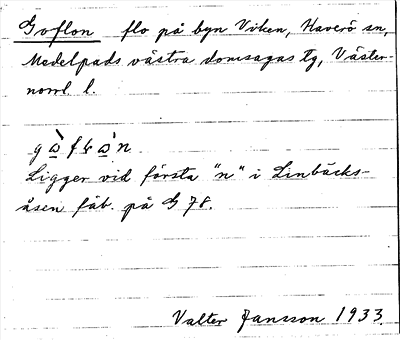 Goflon flo på byn Viken, Haverö sn,
Medelpads västra domsagas tg, Väster-
norrl l.
Ligger vid första "n" i Linbäcks-
åsen fäb. på G 78.
Valter Jansson 1933.